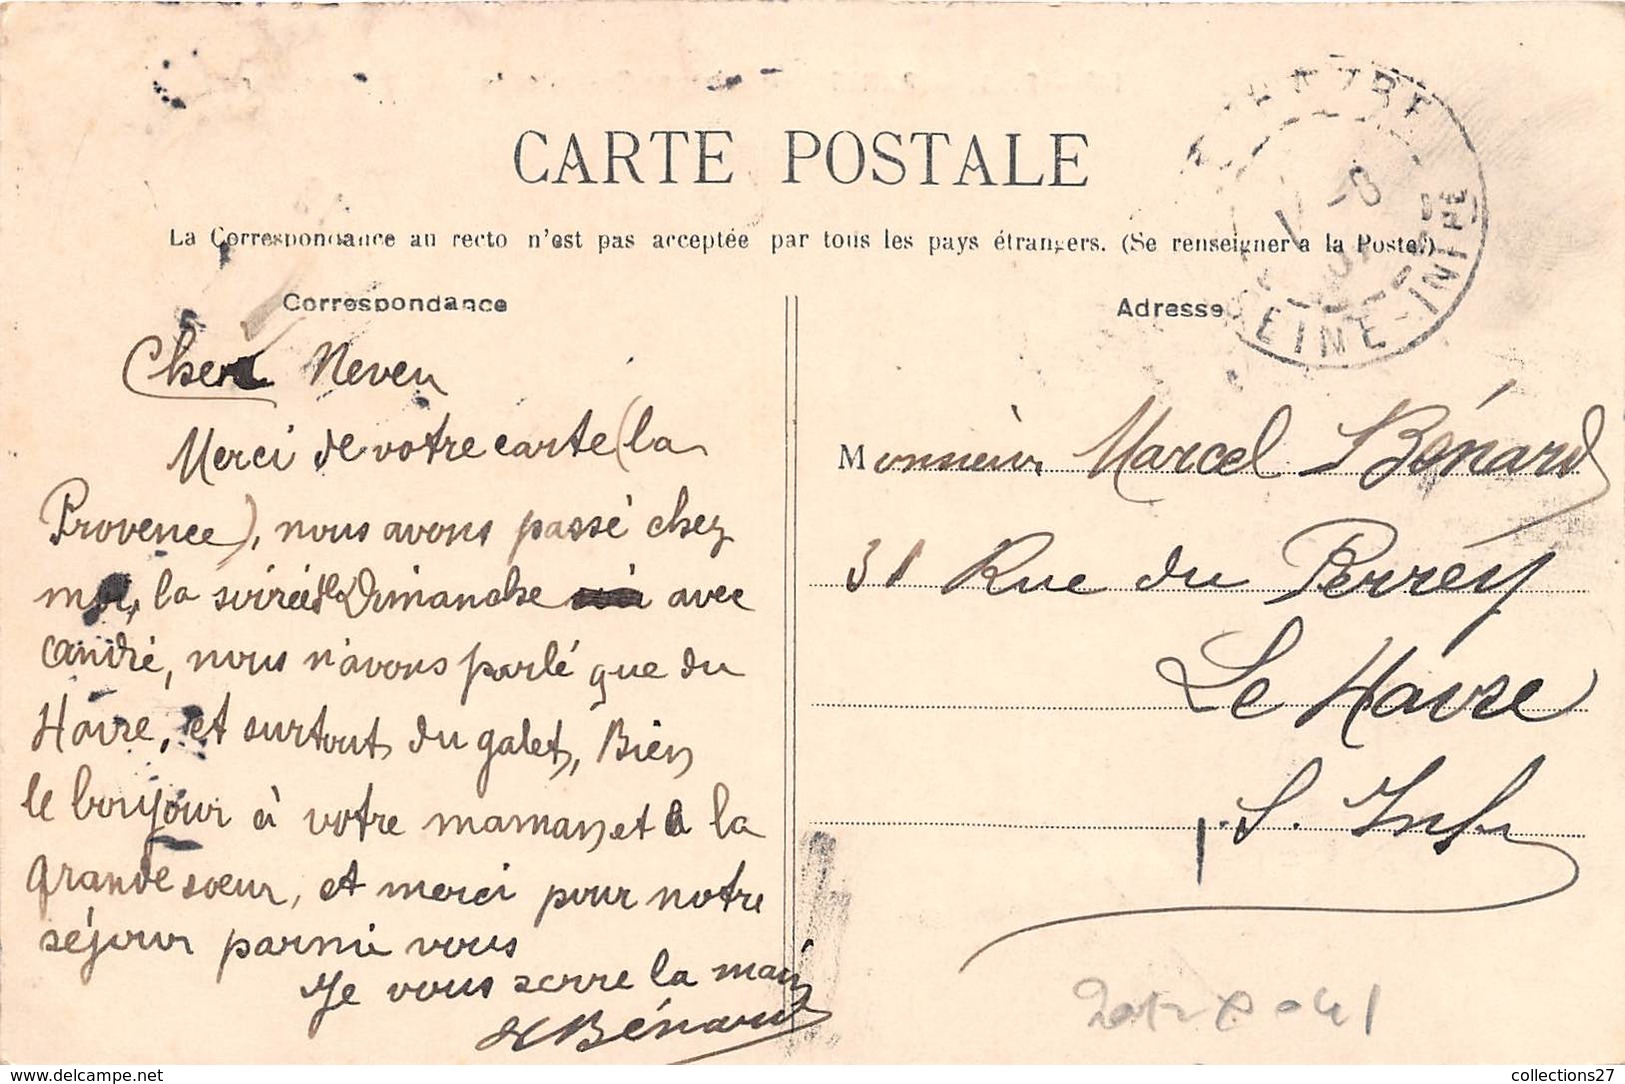 CARTE POSTALE
La Correspondance au recto n'est pas acceptée par tous les pays étrangers. (Se renseigner a la Poste.)
Correspondance
Cher Neveu
Merci de votre carte (la
Provence), nous avons passé chez
moi, la soirée de Dimanche avec
André, nous n'avons parlé que du
Havre, et surtout du galet, Bien
le bonjour à votre maman et à la
grande sœur, et merci pour notre
séjour parmi vous
Je vous serre la main
Bénard
Adresse
Monsieur Marcel Bénard
31 Rue du Perrey
Le Havre
S. Infr
LE HAVRE
SEINE-INFRE
collections27